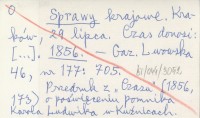 Sprawy krajowe. Kra-
ków, 29 lipca. Czas donosi:
[...]. 1856. – Gaz. Lwowska
46, nr 177: 705.
Przedruk z „Czasu" (1856,
173) o poświęceniu pomnika
Karola Ludwika w Kuźnicach.